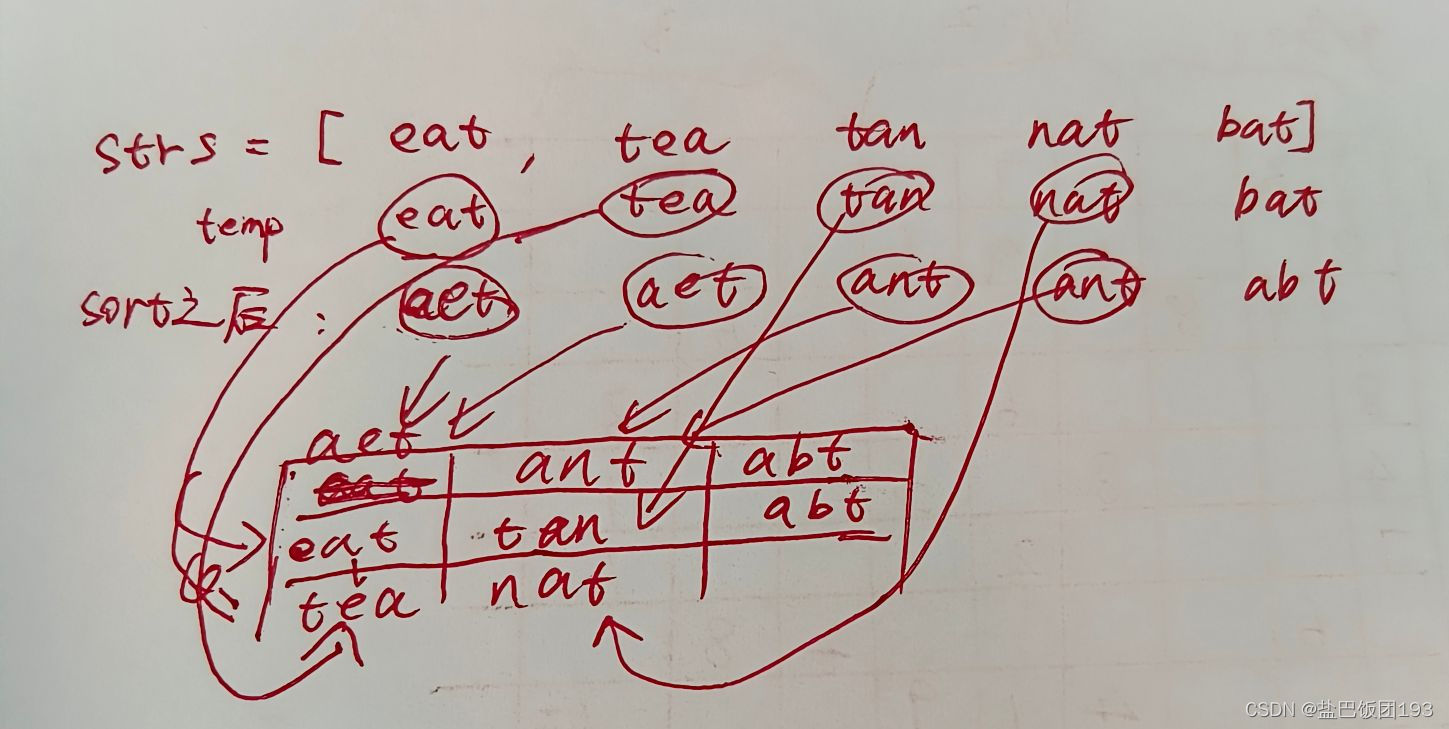 strs = [ eat , tea tan nat bat]
temp eat tea tan nat bat
sort之后 : aet aet ant ant abt
aet ant abt
eat tan abt
tea nat
CSDN @盐巴饭团193